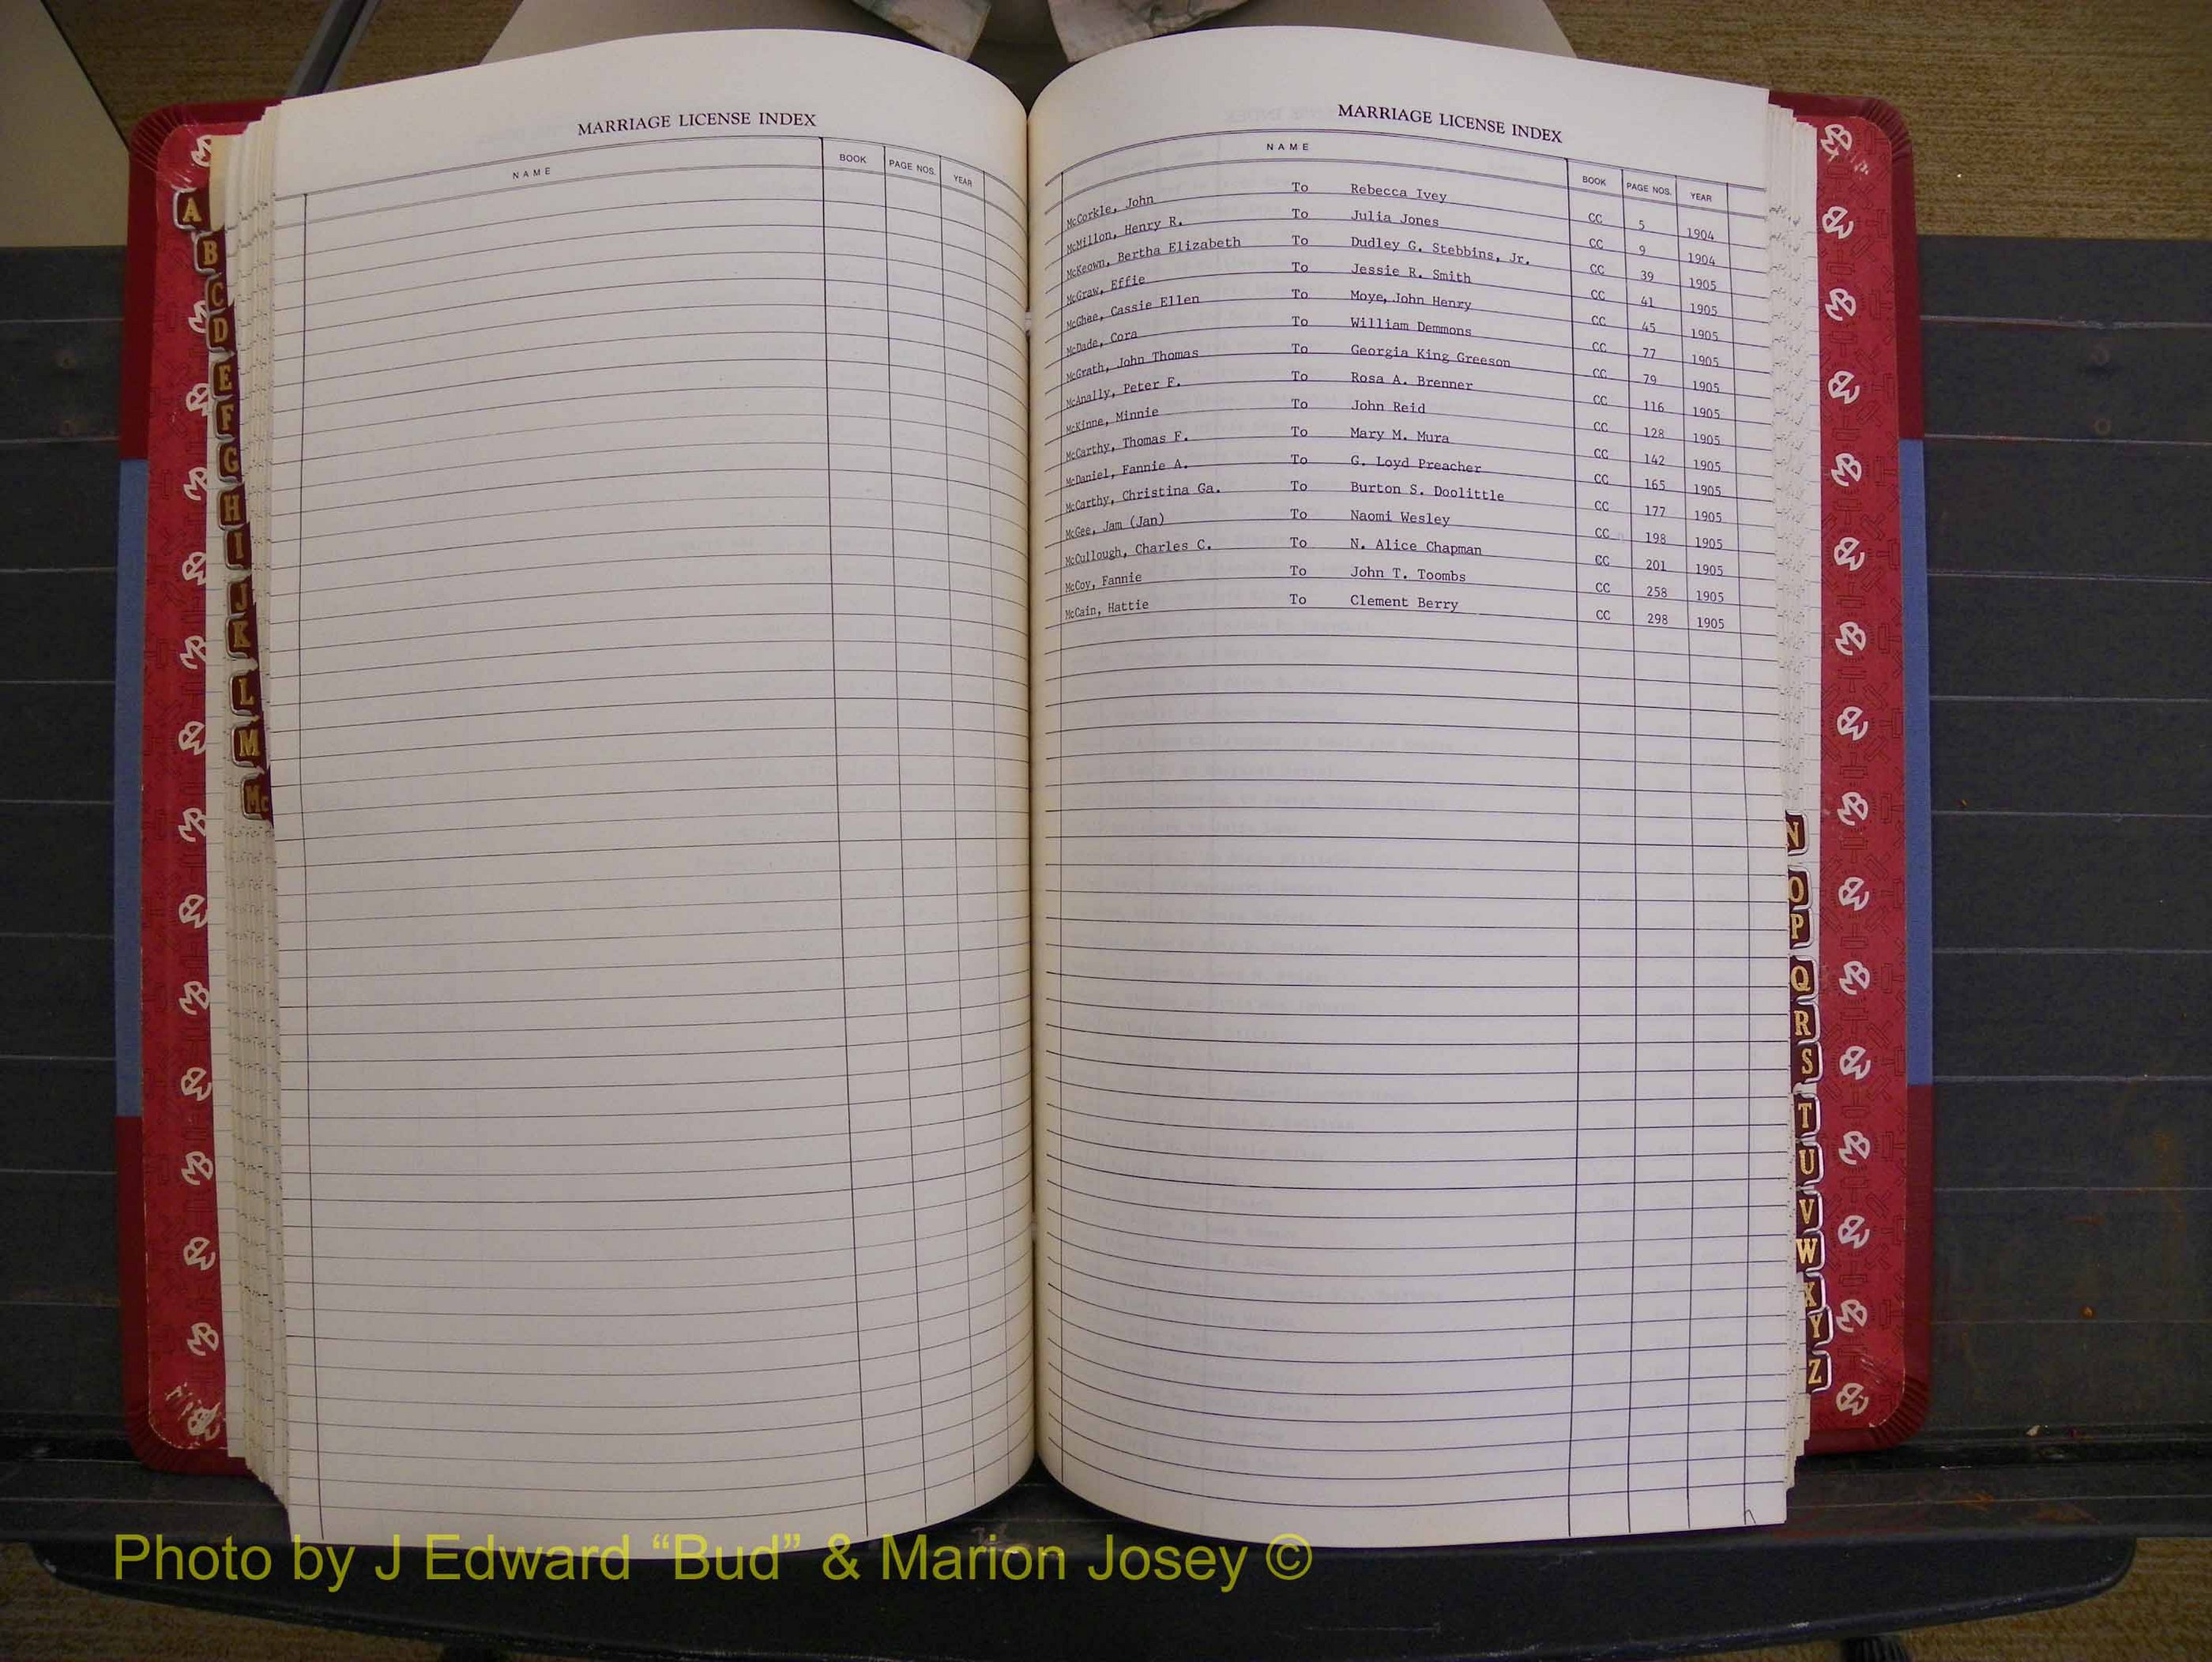 MARRIAGE LICENSE INDEX
NAME BOOK PAGE NOS. YEAR
A
B
C
D
E
F
G
H
I
J
K
L
M
Mc
MARRIAGE LICENSE INDEX
NAME BOOK PAGE NOS. YEAR
McCorkle, John To Rebecca Ivey CC 5 1904
McMillon, Henry R. To Julia Jones CC 9 1904
McKeown, Bertha Elizabeth To Dudley G. Stebbins, Jr. CC 39 1905
McGraw, Effie To Jessie R. Smith CC 41 1905
McGhee, Cassie Ellen To Moye, John Henry CC 45 1905
McDade, Cora To William Demmons CC 77 1905
McGrath, John Thomas To Georgia King Greeson CC 79 1905
McAnally, Peter F. To Rosa A. Brenner CC 116 1905
McKinne, Minnie To John Reid CC 128 1905
McCarthy, Thomas F. To Mary M. Mura CC 142 1905
McDaniel, Fannie A. To G. Loyd Preacher CC 165 1905
McCarthy, Christina Ga. To Burton S. Doolittle CC 177 1905
McGee, Jam (Jan) To Naomi Wesley CC 198 1905
McCullough, Charles C. To N. Alice Chapman CC 201 1905
McCoy, Fannie To John T. Toombs CC 258 1905
McCain, Hattie To Clement Berry CC 298 1905
N
O
P
Q
R
S
T
U
V
W
X
Y
Z
Photo by J Edward “Bud” & Marion Josey ©